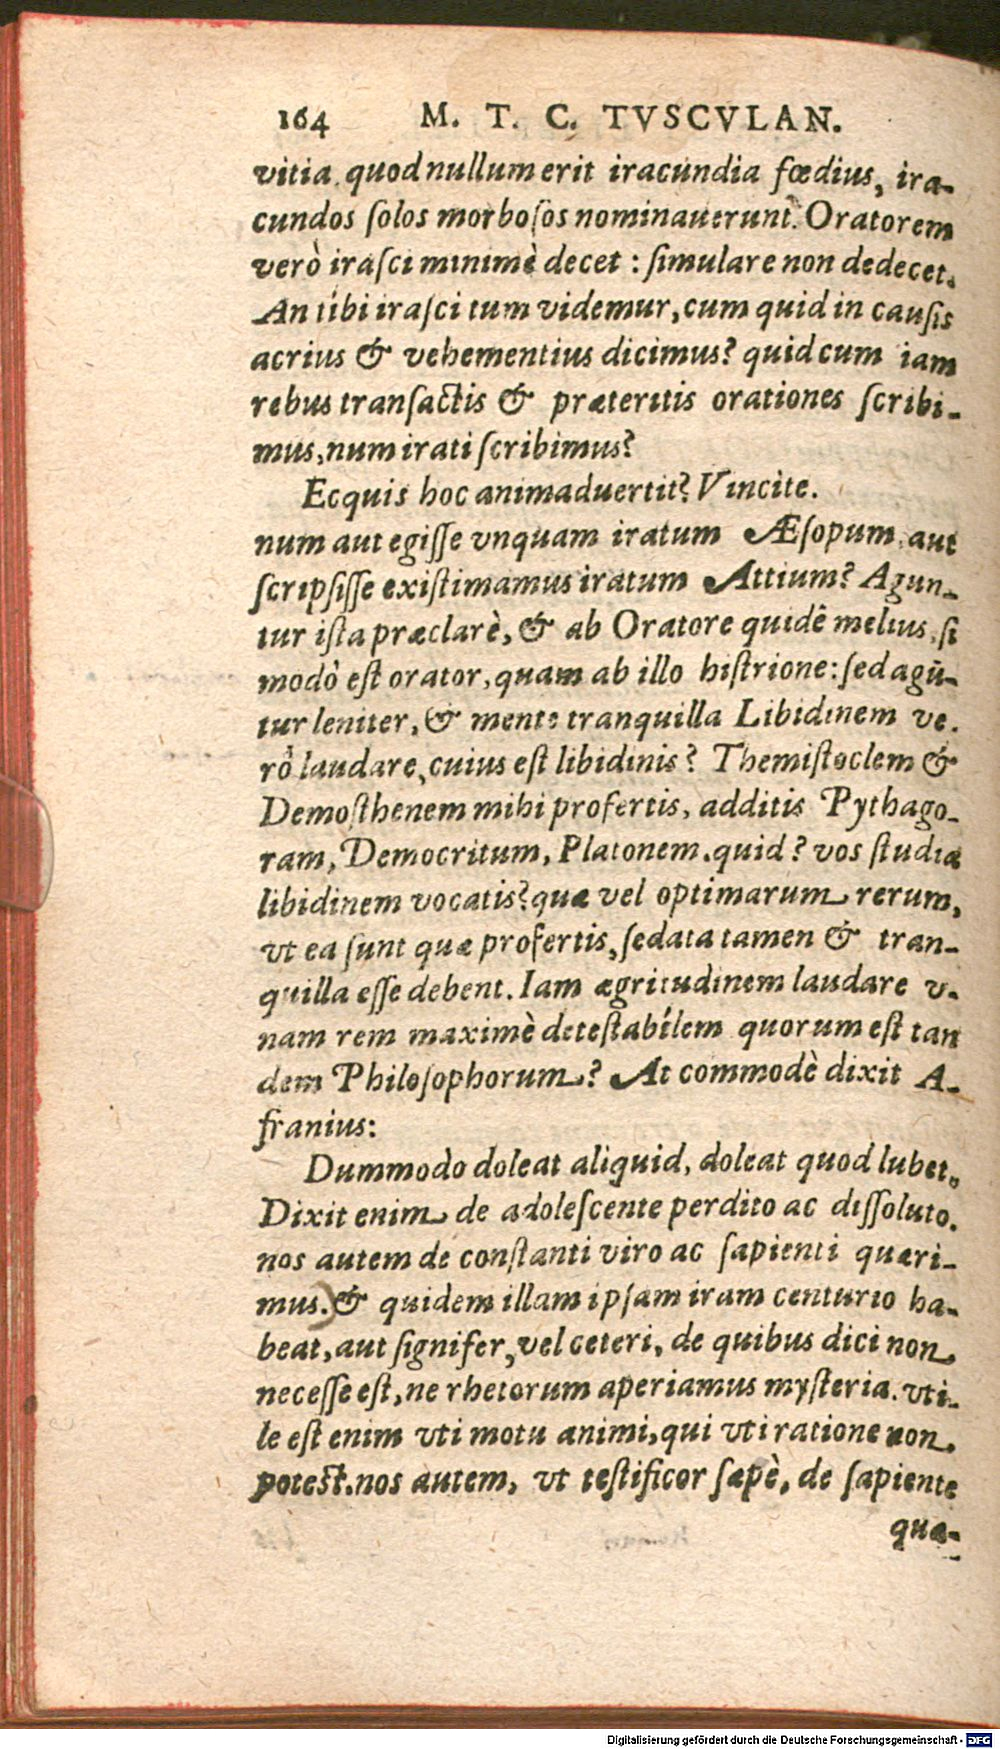 164 M. T. C. TVSCVLAN.
vitia. quod nullum erit iracundia fœdius, ira-
cundos ſolos morboſos nominauerunt. Oratorem
verò iraſci minimè decet : ſimulare non dedecet.
An tibi iraſci tum videmur, cum quid in cauſis
acrius & vehementius dicimus? quid cum iam
rebus tranſactis & præteritis orationes ſcribi-
mus, num irati ſcribimus?
Ecquis hoc animaduertit? Vincite.
num aut egiſſe vnquam iratum Æſopum, aut
ſcripſiſſe exiſtimamus iratum Attium? Agun-
tur iſta præclarè, & ab Oratore quidē melius, ſi
modò eſt orator, quam ab illo hiſtrione: ſed agū-
tur leniter, & mente tranquilla Libidinem ve.
rò laudare, cuius eſt libidinis? Themiſtoclem &
Demoſthenem mihi profertis, additis Pythago-
ram, Democritum, Platonem. quid? vos ſtudia
libidinem vocatis? quæ vel optimarum rerum,
vt ea ſunt quæ profertis, ſedata tamen & tran-
quilla eſſe debent. Iam ægritudinem laudare v-
nam rem maximè deteſtabilem quorum eſt tan
dem Philoſophorum? At commodè dixit A-
franius:
Dummodo doleat aliquid, doleat quod lubet,
Dixit enim de adoleſcente perdito ac diſſoluto.
nos autem de conſtanti viro ac ſapienti quæri-
mus. & quidem illam ipſam iram centurio ha-
beat, aut ſignifer, vel ceteri, de quibus dici non
neceſſe eſt, ne rhetorum aperiamus myſteria. vti-
le eſt enim vti motu animi, qui vti ratione non
poteſt. nos autem, vt teſtificor ſæpè, de ſapiente
quæ-
Digitalisierung gefördert durch die Deutsche Forschungsgemeinschaft - DFG